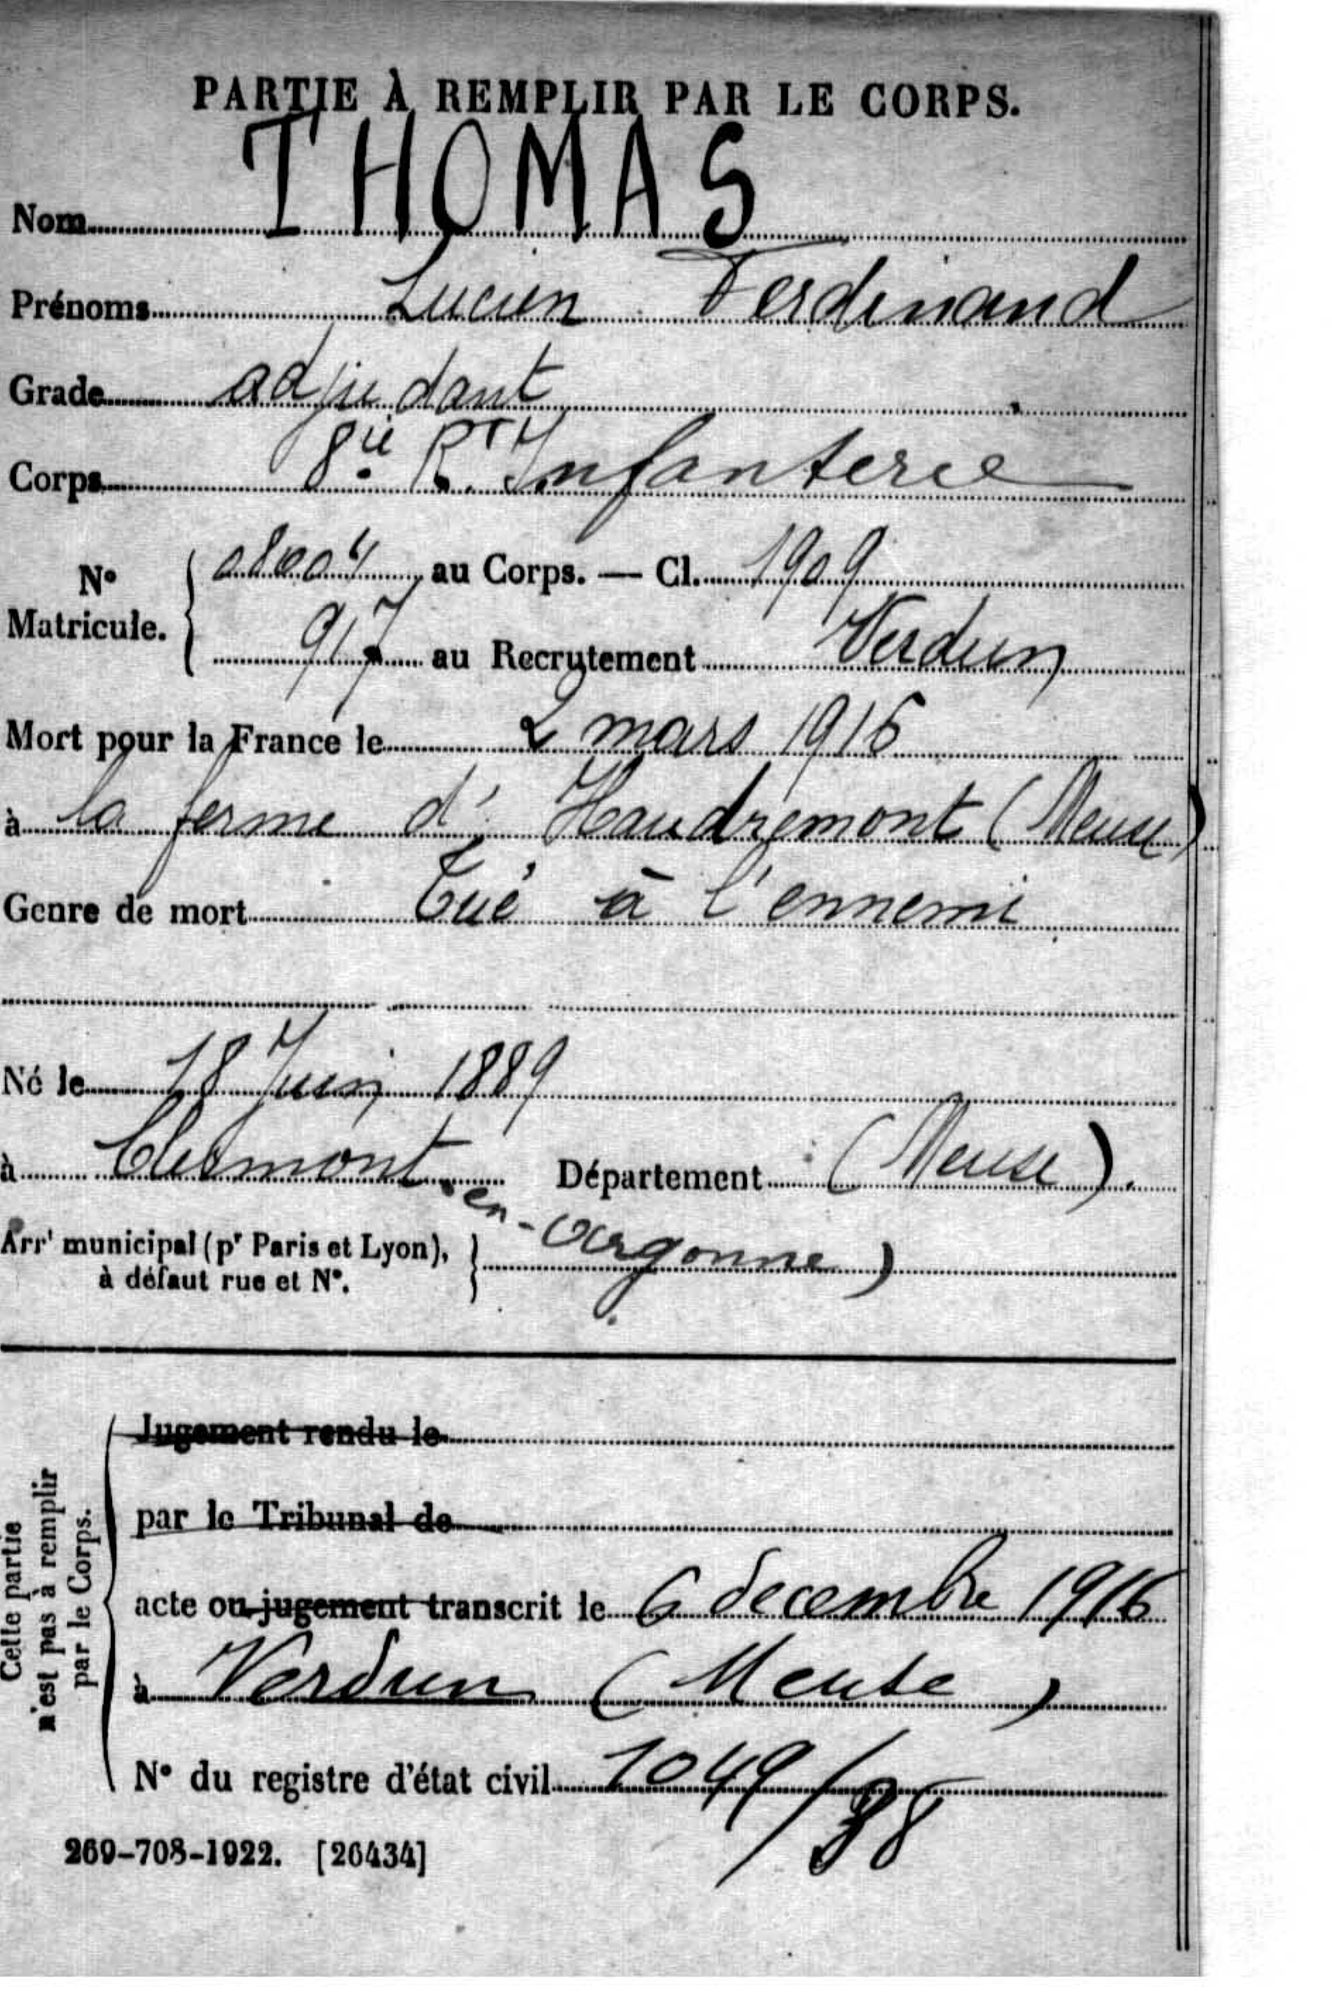 PARTIE À REMPLIR PAR LE CORPS.
Nom THOMAS
Prénoms Lucien Ferdinand
Grade adjudant
Corps 8ie Rt Infanterie
N° Matricule. au Corps. — Cl. 1909
917 au Recrutement Verdun
Mort pour la France le 2 mars 1916
à la ferme d'Haudremont (Meuse)
Genre de mort Tué à l'ennemi
Né le 18 Juin 1889
à Clermont Département (Meuse).
en-Argonne)
Arrt municipal (pr Paris et Lyon),
à défaut rue et N°.
Cette partie
n'est pas à remplir
par le Corps.
Jugement rendu le
par le Tribunal de
acte ou jugement transcrit le 6 decembre 1916
à Verdun (Meuse)
N° du registre d'état civil 1049/38
269-708-1922. [26434]